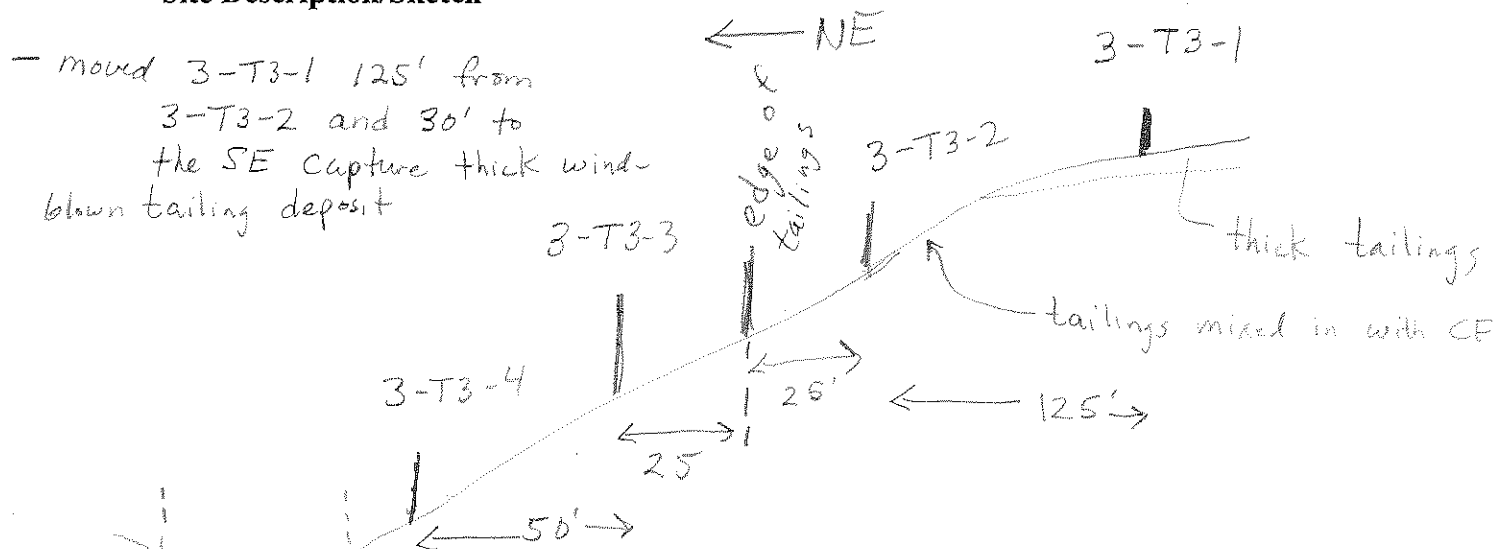 Site Description/Sketch
← NE
3-T3-1
– moved 3-T3-1 125' from
3-T3-2 and 30' to
the SE Capture thick wind-
blown tailing deposit
edge of
tailings
3-T3-2
3-T3-3
thick tailings
tailings mixed in with
3-T3-4
25'
125'
25
50'